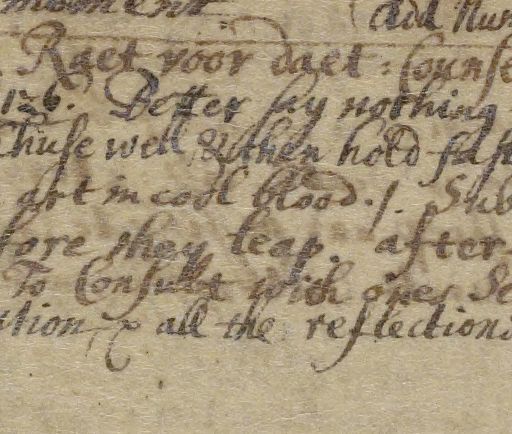 moment (Add Nun
Raet voor daet : Counse
126. Better say nothing
Chuse well, & then hold fast
art in cool blood. /. Sub
fore they leap. after
To Consult with ones Se
ution, & all the reflections